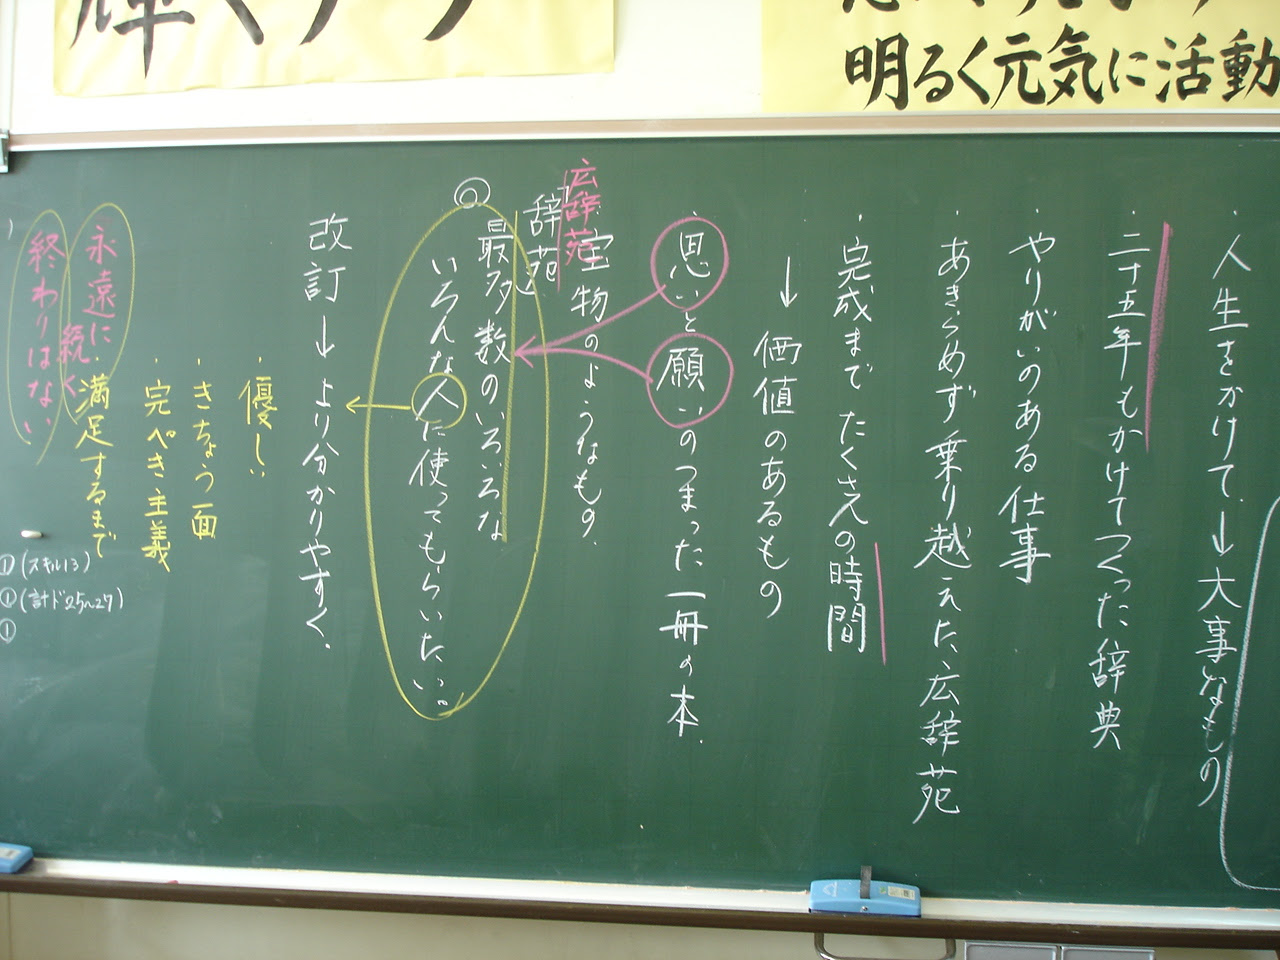 輝く
明るく元気に活動
・人生をかけて→大事なもの
・二十五年もかけてつくった辞典
・やりがいのある仕事
・あきらめず乗り越えた広辞苑
・完成までたくさんの時間
↓価値のあるもの
・思いと願いのつまった一冊の本.
宝物のようなもの.
広辞苑
辞苑
◎
最多数のいろいろな
いろんな人に使ってもらいたい。
改訂→より分かりやすく.
・優しい
・きちょう面
・完ぺき主義
・満足するまで
永遠に続く
終わりはない
①(スキル13)
①(計ド25〜27)
①